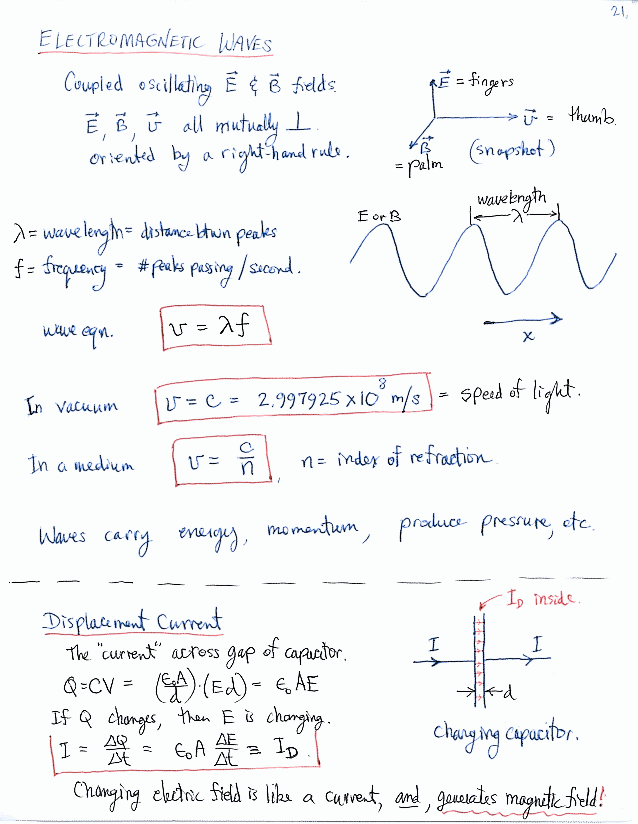 21.
ELECTROMAGNETIC WAVES
Coupled oscillating E⃗ & B⃗ fields.
E⃗, B⃗, v⃗ all mutually ⊥.
oriented by a right-hand rule.
E⃗ = fingers
v⃗ = thumb.
B⃗
= palm
(snapshot)
λ = wavelength = distance btwn peaks
f = frequency = # peaks passing / second.
E or B
wavelength
λ
x
wave eqn. v = λf
In vacuum v = c = 2.997925 × 10⁸ m/s = speed of light.
In a medium v = c/n , n = index of refraction.
Waves carry energy, momentum, produce pressure, etc.
Displacement Current
The "current" across gap of capacitor.
Q = CV = (ε₀A/d)·(Ed) = ε₀AE
If Q changes, then E is changing.
I = ΔQ/Δt = ε₀A ΔE/Δt ≡ I_D
I_D inside.
I
I
d
Changing capacitor.
Changing electric field is like a current, and, generates magnetic field!